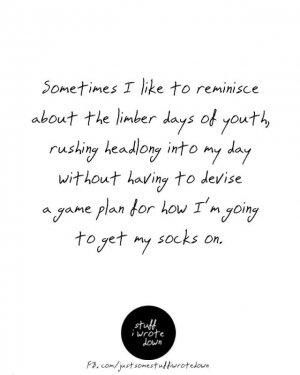 Sometimes I like to reminisce
about the limber days of youth,
rushing headlong into my day
without having to devise
a game plan for how I'm going
to get my socks on.
stuff
i wrote
down
FB.com/justsomestuffiwrotedown